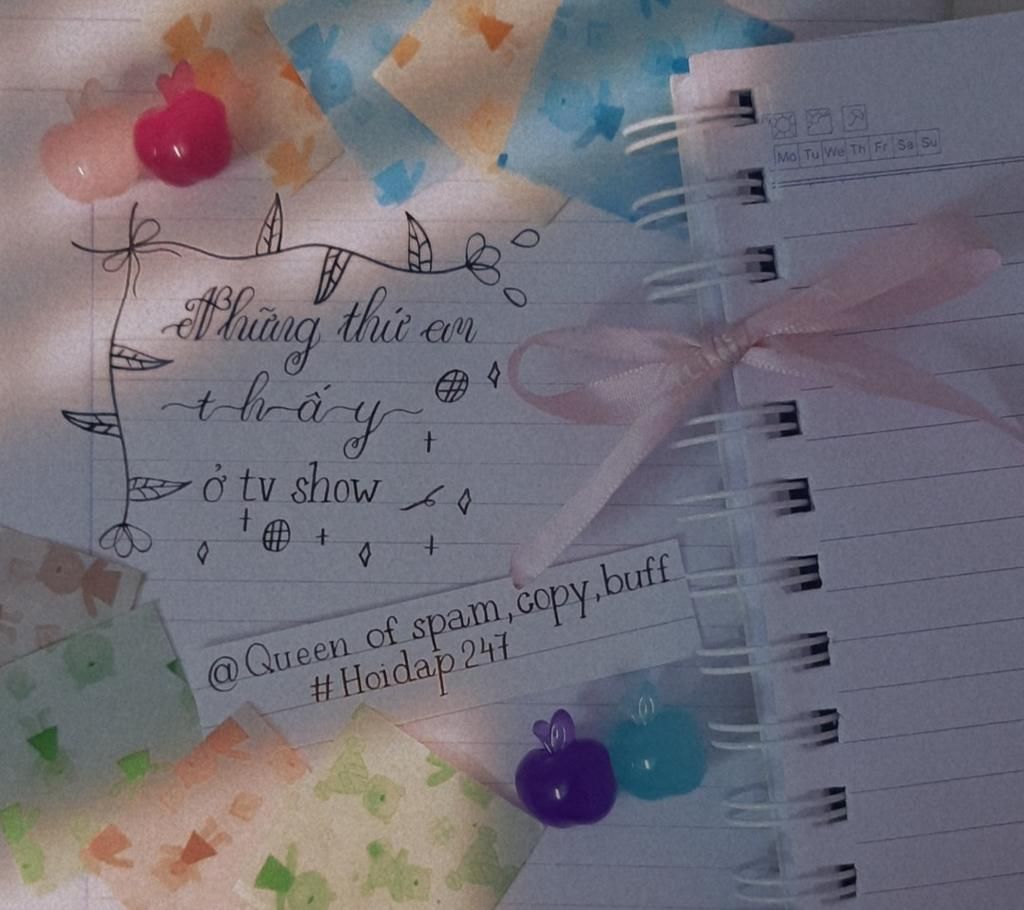 Mo Tu We Th Fr Sa Su
Những thứ em
thấy
ở tv show
@Queen of spam,copy,buff
#Hoidap247